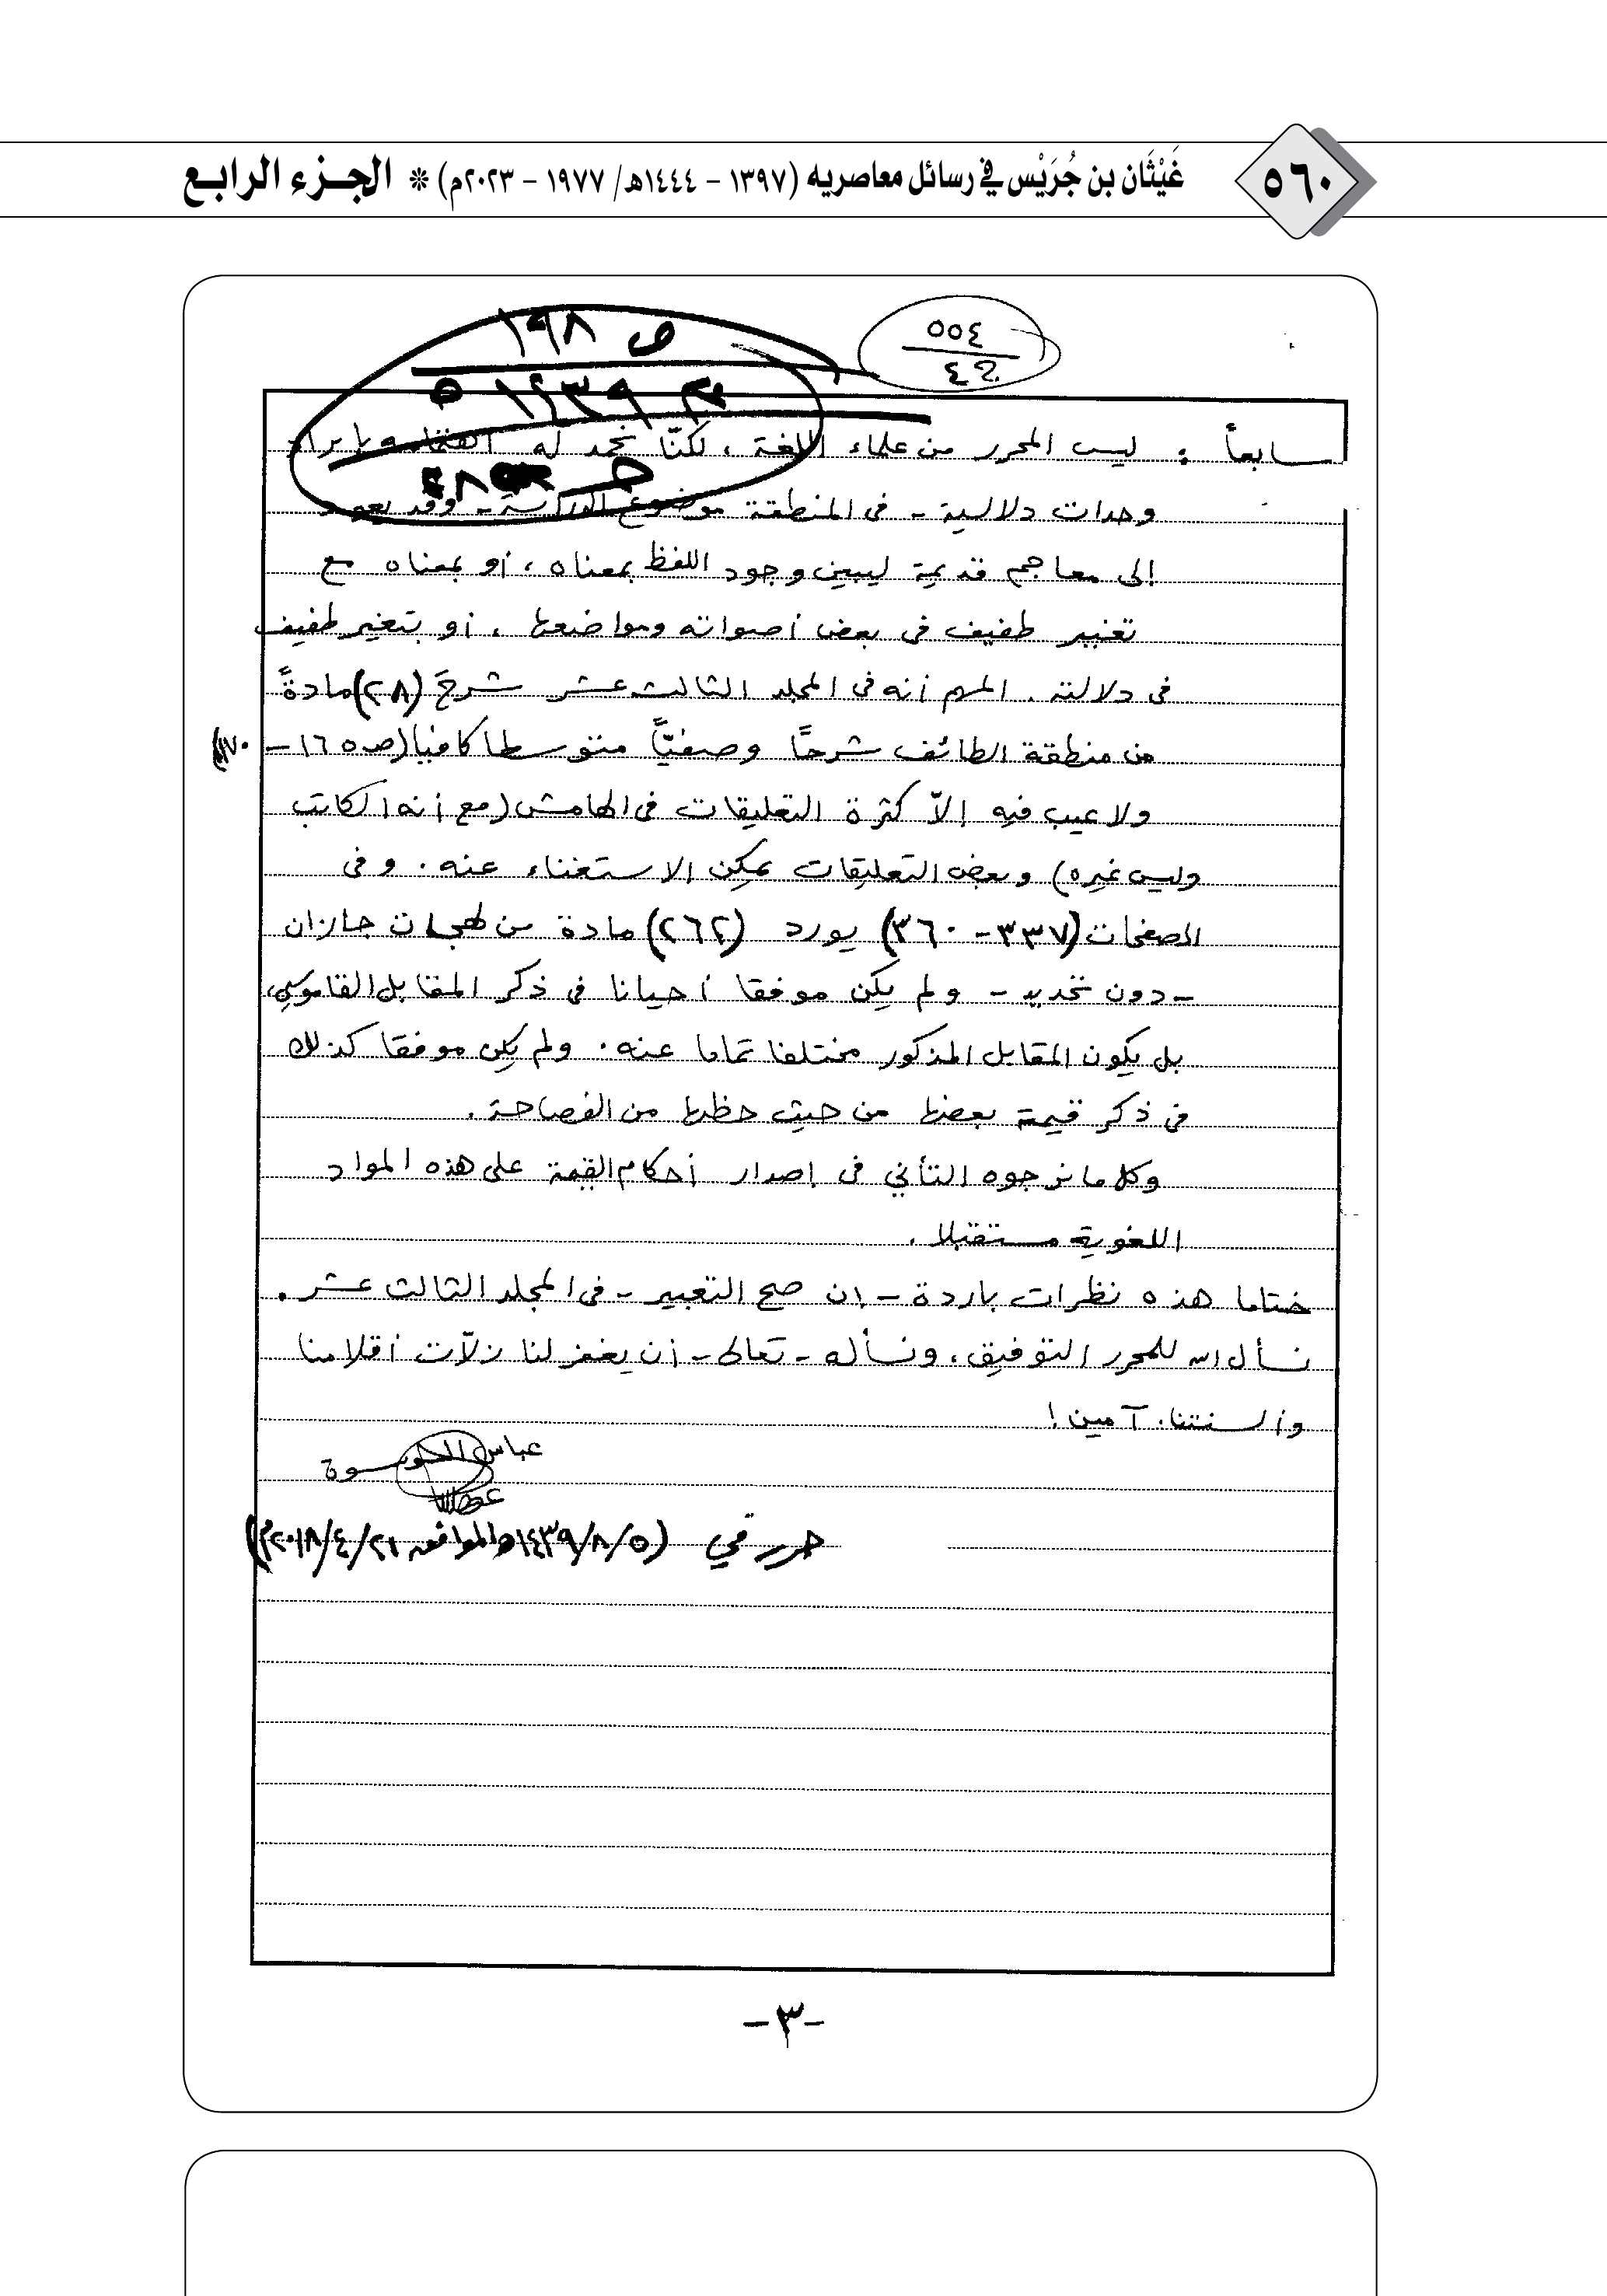 ٥٦٠
غَيْثَان بن جُرَيْس في رسائل معاصريه (١٣٩٧ - ١٤٤٤هـ/ ١٩٧٧ - ٢٠٢٣م) * الجـزء الرابـع
٥٥٤
ج٤
ص ١٩٨
١٤٣٩ هـ
سابعاً : ليس المحرر من علماء اللغة ، لكنّا نجد له اهتمامه بإيراد
وحدات دلالية - فى المنطقة موضوع الدراسة - وقد يعود
إلى معاجم قديمة ليبين وجود اللفظ بمعناه ، أو بمعناه مع
تغيير طفيف فى بعض أصواته ومواضعها ، أو بتغيير طفيف
فى دلالته . المهم أنه فى المجلد الثالث عشر شرحَ (٢٨) مادةً
من منطقة الطائف شرحًا وصفيًّا متوسطا كافيا (صـ ١٦٥ - ١٧٠)
ولا عيب فيه إلاّ كثرة التعليقات فى الهامش (مع أنه الكاتب
وليس غيره) وبعض التعليقات يمكن الاستغناء عنه . وفى
الصفحات (٣٣٧ - ٣٦٠) يورد (٢٦٢) مادة من لهجات جازان
- دون تحديد - ولم يكن موفقا أحيانا فى ذكر المقابل القاموسي،
بل يكون المقابل المذكور مختلفا تماما عنه . ولم يكن موفقا كذلك
فى ذكر قيمة بعضها من حيث حظها من الفصاحة .
وكل ما نرجوه التأني فى إصدار أحكام القيمة على هذه المواد
اللغوية مستقبلا .
ختاما هذه نظرات باردة - إن صح التعبير - فى المجلد الثالث عشر .
نسأل الله للمحرر التوفيق ، ونسأله - تعالى - أن يغفر لنا زلاّت أقلامنا
وألسنتنا . آمين !
عباس السوسوة
حرر في (١٤٣٩/٨/٥هـ الموافق ٢٠١٨/٤/٢١م)
-٣-